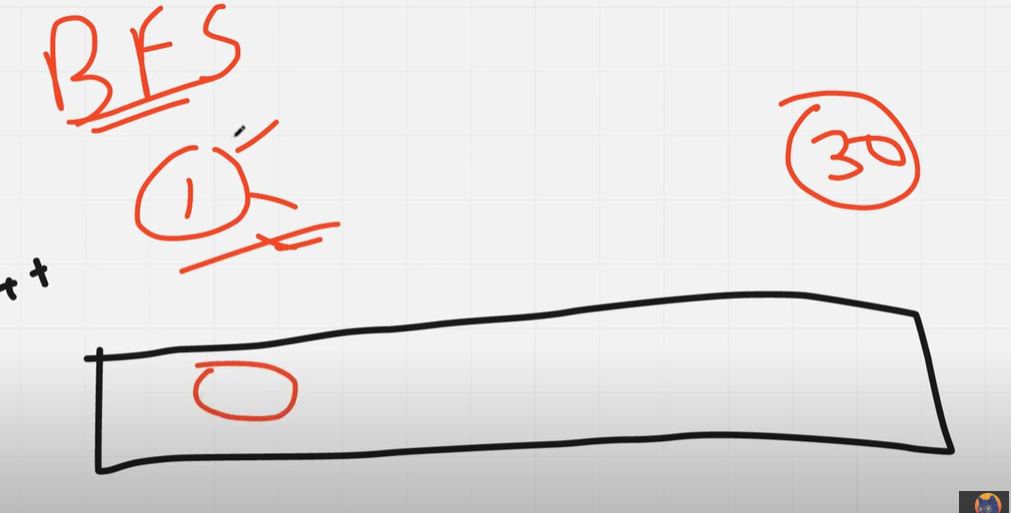 BFS
1
30
++